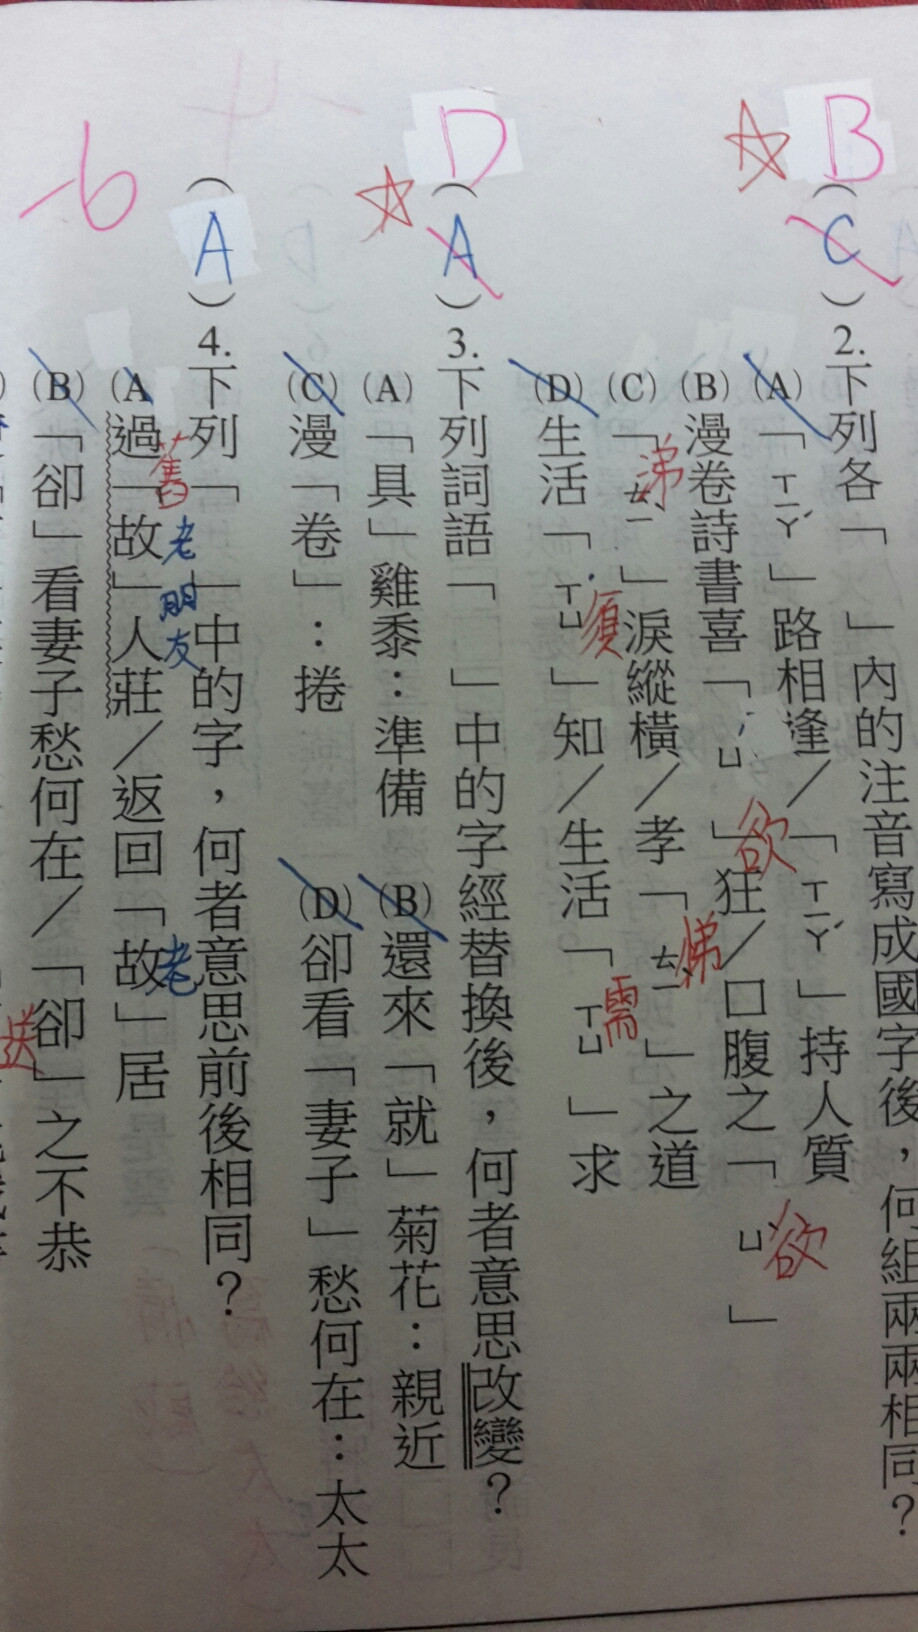 B
(C)2.下列各「 」內的注音寫成國字後,何組兩兩相同?
(A)「ㄒㄧㄚˊ」路相逢/「ㄒㄧㄚˊ」持人質
(B)漫卷詩書喜「ㄩˋ」狂/口腹之「ㄩˋ」
欲
欲
(C)「ㄊㄧˋ」淚縱橫/孝「ㄊㄧˋ」之道
涕
悌
(D)生活「ㄒㄩ」知/生活「ㄒㄩ」求
須
需
D
(A)3.下列詞語「 」中的字經替換後,何者意思改變?
(A)「具」雞黍:準備
(B)還來「就」菊花:親近
(C)漫「卷」:捲
(D)卻看「妻子」愁何在:太太
(A)4.下列「 」中的字,何者意思前後相同?
舊
老朋友
老
(A)過「故」人莊/返回「故」居
(B)「卻」看妻子愁何在/「卻」之不恭
送
-6